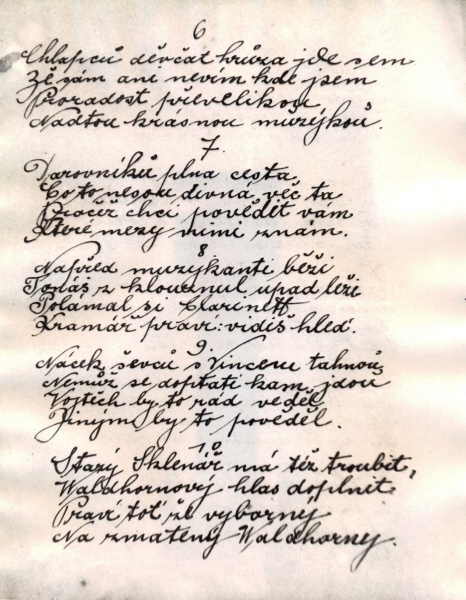 6
Chlapců děvčat hrůza jde sem
Že sám ani nevím kde jsem
Pro radost převelikou
Nad tou krásnou muzejkou.
7.
Darovníků plna cesta
Co to nesou divná věc ta
Pročež chci povědět vám
Které mezy nimi znám.
8.
Napřed muzykanti běží
Tomáš z klouznul upad leží
Polámal si Clarinett
Kramář praví: vidíš hleď.
9.
Nácek ševců s Vincem tahnou
Nemůž se doptati kam jdou
Vojtěch by to rád veděl
Jiným by to pověděl.
10
Starý Sklenář má též troubit,
Waldhornový hlas doplnit,
Praví toť že vyborny
Na zmateny Waldhorny.